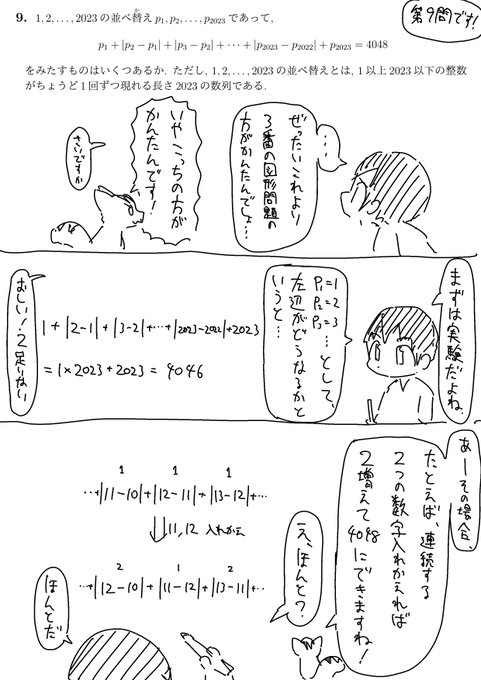 第9問です!
9. 1, 2, . . . , 2023 の並べ替え p₁, p₂, . . . , p₂₀₂₃ であって,
p₁ + |p₂ − p₁| + |p₃ − p₂| + · · · + |p₂₀₂₃ − p₂₀₂₂| + p₂₀₂₃ = 4048
をみたすものはいくつあるか. ただし, 1, 2, . . . , 2023 の並べ替えとは, 1 以上 2023 以下の整数
がちょうど 1 回ずつ現れる長さ 2023 の数列である.
…
ぜったいこれより
3番の図形問題の
方がかんたんでしょ…
いやこっちの方が
かんたんです!
さいですか
まずは実験だよね
P₁=1
P₂=2
P₃=3 …として、
左辺がどうなるかと
いうと…
1+|2-1|+|3-2|+…+|2023-2022|+2023
=1×2023+2023= 4046
おしい!2足りない
あーその場合、
たとえば、連続する
2つの数字入れかえれば
2増えて4048
にできますね!
1 1 1
…+|11-10|+|12-11|+|13-12|+…
⇓11,12 入れかえ
2 1 2
…+|12-10|+|11-12|+|13-11|+…
え、ほんと?
ほんとだ